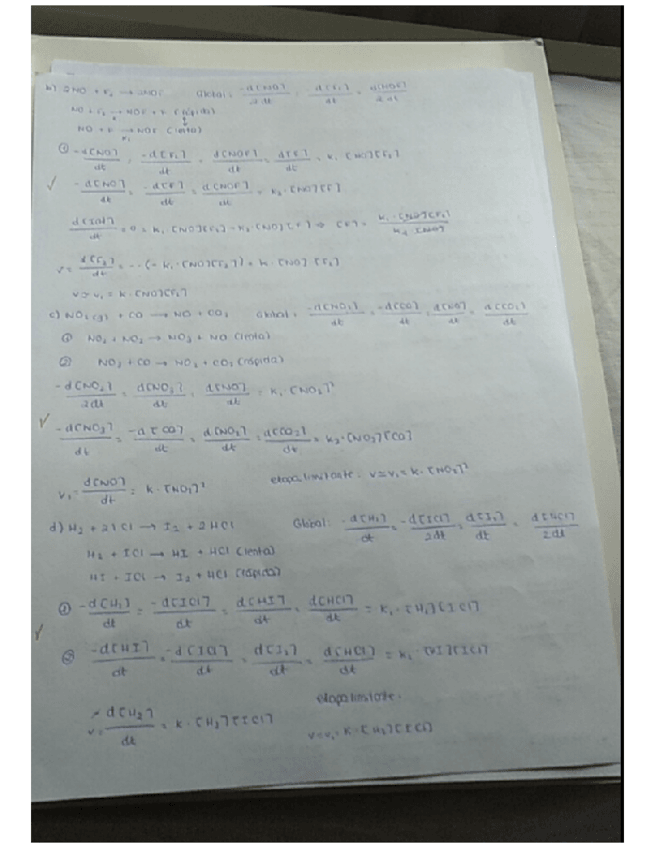 b) 2NO + F₂ → 2NOF Global: -d[NO]/2dt = -d[F₂]/dt = d[NOF]/2dt
NO + F₂ → NOF + F (rápida)
NO + F → NOF (lenta)
① -d[NO]/dt = -d[F₂]/dt = d[NOF]/dt = d[F]/dt = k₁·[NO][F₂]
✓ -d[NO]/dt = -d[F]/dt = d[NOF]/dt = k₂·[NO][F]
= 0 = k₁·[NO][F₂] - k₂·[NO][F] ⇒ [F] = k₁·[NO][F₂]/k₂·[NO]
v = d[F₂]/dt = -(- k₁·[NO][F₂]) = k·[NO][F₂]
v = v₁ = k·[NO][F₂]
c) NO₂(g) + CO → NO + CO₂ Global = -d[NO₂]/dt = -d[CO]/dt = d[NO]/dt = d[CO₂]/dt
① NO₂ + NO₂ → NO₃ + NO (lenta)
② NO₃ + CO → NO₂ + CO₂ (rápida)
-d[NO₂]/2dt = d[NO₃]/dt = d[NO]/dt = k₁·[NO₂]²
✓ -d[NO₃]/dt = -d[CO]/dt = d[NO₂]/dt = d[CO₂]/dt = k₂·[NO₃][CO]
v₁ = d[NO]/dt = k·[NO₂]² etapa limitante: v = v₁ = k·[NO₂]²
d) H₂ + 2ICl → I₂ + 2HCl Global: -d[H₂]/dt = -d[ICl]/2dt = d[I₂]/dt = d[HCl]/2dt
H₂ + ICl → HI + HCl (lenta)
HI + ICl → I₂ + HCl (rápida)
① -d[H₂]/dt = -d[ICl]/dt = d[HI]/dt = d[HCl]/dt = k₁·[H₂][ICl]
✓ ② -d[HI]/dt = -d[ICl]/dt = d[I₂]/dt = d[HCl]/dt = k₁·[HI][ICl]
etapa limitante:
v = -d[H₂]/dt = k·[H₂][ICl]
v = v₁ = k·[H₂][ICl]